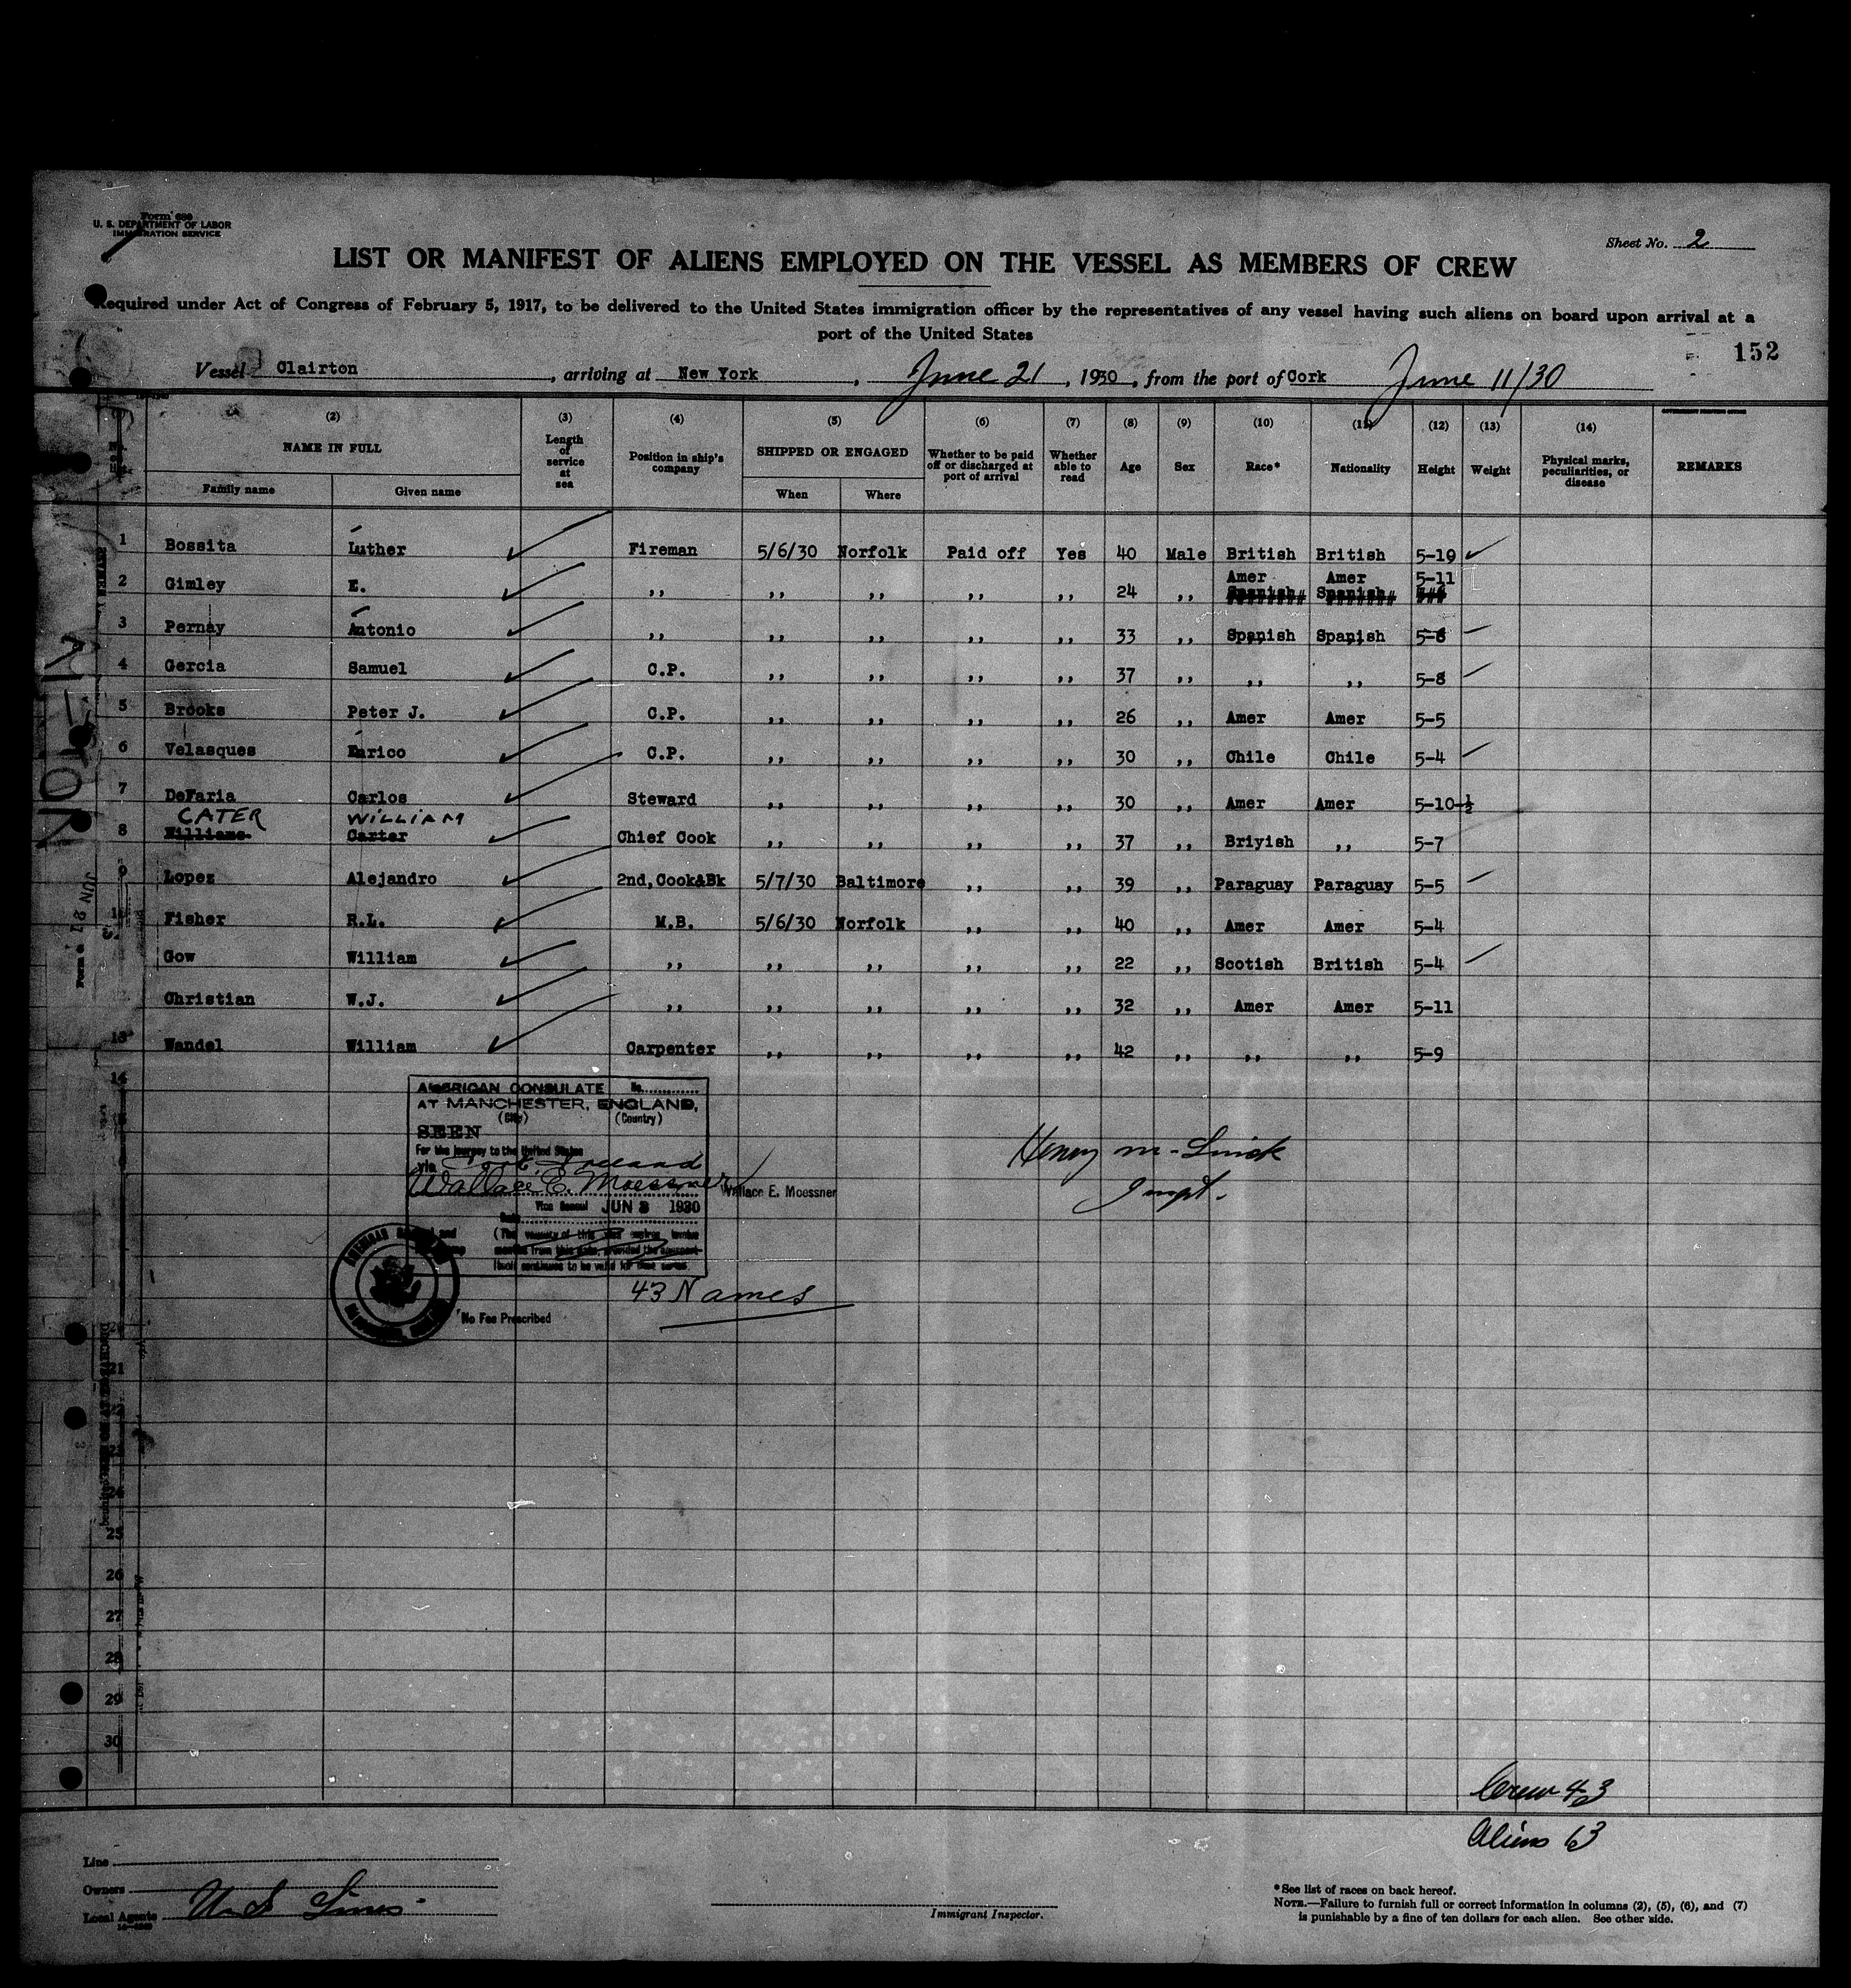 Form 689
U. S. DEPARTMENT OF LABOR
IMMIGRATION SERVICE
Sheet No. 2
LIST OR MANIFEST OF ALIENS EMPLOYED ON THE VESSEL AS MEMBERS OF CREW
Required under Act of Congress of February 5, 1917, to be delivered to the United States immigration officer by the representatives of any vessel having such aliens on board upon arrival at a
port of the United States
152
Vessel Clairton, arriving at New York, June 21, 1930, from the port of Cork June 11/30
(2) (3) (4) (5) (6) (7) (8) (9) (10) (11) (12) (13) (14)
NAME IN FULL Length of service at sea Position in ship's company SHIPPED OR ENGAGED Whether to be paid off or discharged at port of arrival Whether able to read Age Sex Race* Nationality Height Weight Physical marks, peculiarities, or disease REMARKS
Family name Given name When Where
1 Bossita Luther Fireman 5/6/30 Norfolk Paid off Yes 40 Male British British 5-19
Amer Amer 5-11
2 Gimley E. ,, ,, ,, ,, ,, 24 ,, Spanish Spanish
3 Pernay Antonio ,, ,, ,, ,, ,, 33 ,, Spanish Spanish 5-6
4 Gercia Samuel C.P. ,, ,, ,, ,, 37 ,, ,, ,, 5-8
5 Brooks Peter J. C.P. ,, ,, ,, ,, 26 ,, Amer Amer 5-5
6 Velasques Enrico C.P. ,, ,, ,, ,, 30 ,, Chile Chile 5-4
7 DeFaria Carlos Steward ,, ,, ,, ,, 30 ,, Amer Amer 5-10-½
CATER WILLIAM
8 Williams Carter Chief Cook ,, ,, ,, ,, 37 ,, Briyish ,, 5-7
9 Lopez Alejandro 2nd,Cook&Bk 5/7/30 Baltimore ,, ,, 39 ,, Paraguay Paraguay 5-5
Fisher R.L. M.B. 5/6/30 Norfolk ,, ,, 40 ,, Amer Amer 5-4
Gow William ,, ,, ,, ,, ,, 22 ,, Scotish British 5-4
Christian W.J. ,, ,, ,, ,, ,, 32 ,, Amer Amer 5-11
13 Wandel William Carpenter ,, ,, ,, ,, 42 ,, ,, ,, 5-9
14
AMERICAN CONSULATE No.
AT MANCHESTER, ENGLAND,
(City) (Country)
SEEN
For the journey to the United States
via Ireland
Wallace E. Moessner Wallace E. Moessner
Vice Consul JUN 3 1930
Date
43 Names
No Fee Prescribed
Henry M. Linick
Inspt.
21
24
25
26
27
28
29
30
Crew 43
Aliens 63
Line
Owners
Local Agents U.S. Lines
Immigrant Inspector.
*See list of races on back hereof.
NOTE.—Failure to furnish full or correct information in columns (2), (5), (6), and (7)
is punishable by a fine of ten dollars for each alien. See other side.